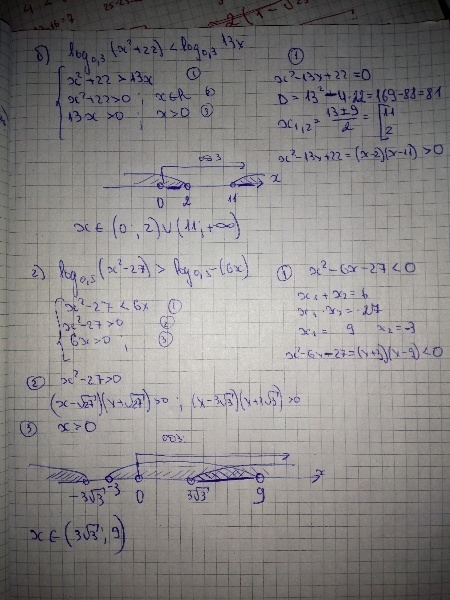 б) log₀,₃(x²+22) < log₀,₃ 13x
x²+22 > 13x ①
x²+22>0 ; x∈R ②
13x >0 ; x>0 ③
①
x²-13x+22=0
D = 13² - 4·22 = 169-88=81
x₁,₂ = (13±9)/2 = [11
2
x²-13x+22=(x-2)(x-11) >0
ОДЗ
0 2 11 x
x∈ (0; 2)∪(11; +∞)
г) log₀,₅(x²-27) > log₀,₅ (6x)
x²-27 < 6x ①
x²-27 >0 ②
6x>0 ; ③
① x²-6x-27<0
x₁+x₂=6
x₁·x₂=-27
x₁= 9 x₂=-3
x²-6x-27=(x+3)(x-9)<0
② x²-27>0
(x-√27)(x+√27)>0 ; (x-3√3)(x+3√3)>0
③ x>0
ОДЗ
-3√3 -3 0 3√3 9 x
x∈ (3√3; 9)